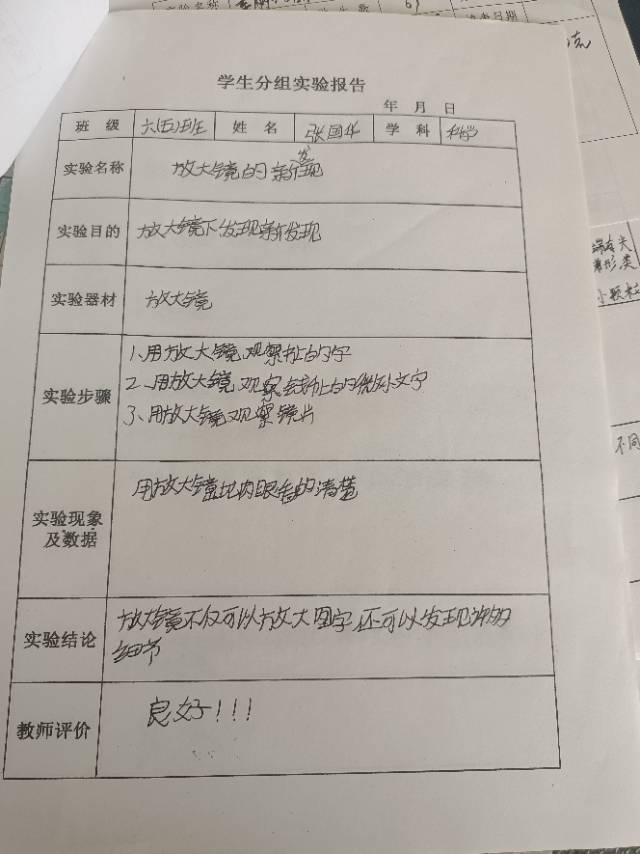 学生分组实验报告
年 月 日
班 级 六(五)班 姓 名 张国华 学 科 科学
实验名称 放大镜的新发现
实验目的 放大镜下发现新发现
实验器材 放大镜
实验步骤
1、用放大镜观察扯的字
2、用放大镜观察钱扯的微外文字
3、用放大镜观察镜片
实验现象
及数据
用放大镜比肉眼看的清楚
实验结论
放大镜不仅可以放大图字还可以发现许多
细节
教师评价 良好!!!
不同
小颗粒